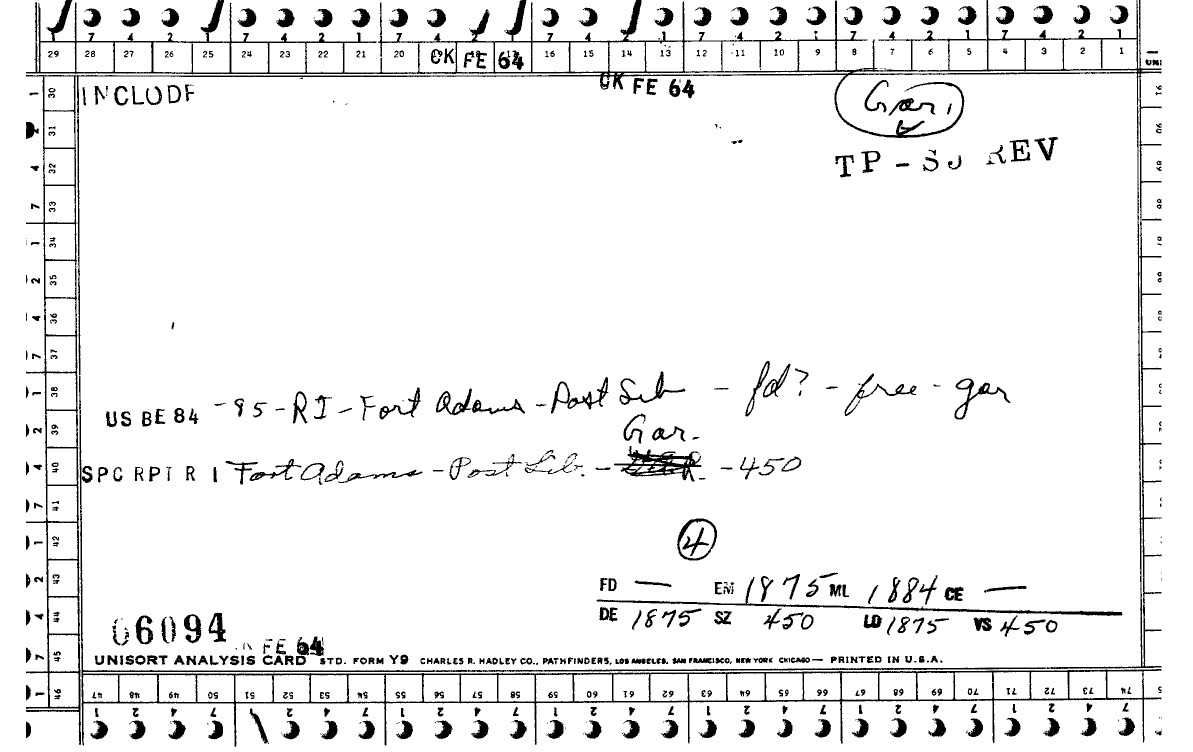 7 4 2 7 4 2 1 7 4 7 4 1 7 4 2 1 7 4 2 1 7 4 2 1
29 28 27 26 25 24 23 22 21 20 16 15 14 13 12 11 10 9 8 7 6 5 4 3 2 1
CK FE 64
CK FE 64
INCLUDE
Gar.
TP - SU REV
US BE 84 - 95 - RI - Fort Adams - Post Lib - fd? - free - gar
Gar.
SPC RPT R I Fort Adams - Post Lib. - 450
4
FD — EM 1875 ML 1884 CE —
DE 1875 SZ 450 LD 1875 VS 450
66094
FE 64
UNISORT ANALYSIS CARD STD. FORM Y9 CHARLES R. HADLEY CO., PATHFINDERS, LOS ANGELES, SAN FRANCISCO, NEW YORK CHICAGO — PRINTED IN U.S.A.
30 31 32 33 34 35 36 37 38 39 40 41 42 43 44 45 46
47 48 49 50 51 52 53 54 55 56 57 58 59 60 61 62 63 64 65 66 67 68 69 70 71 72 73 74